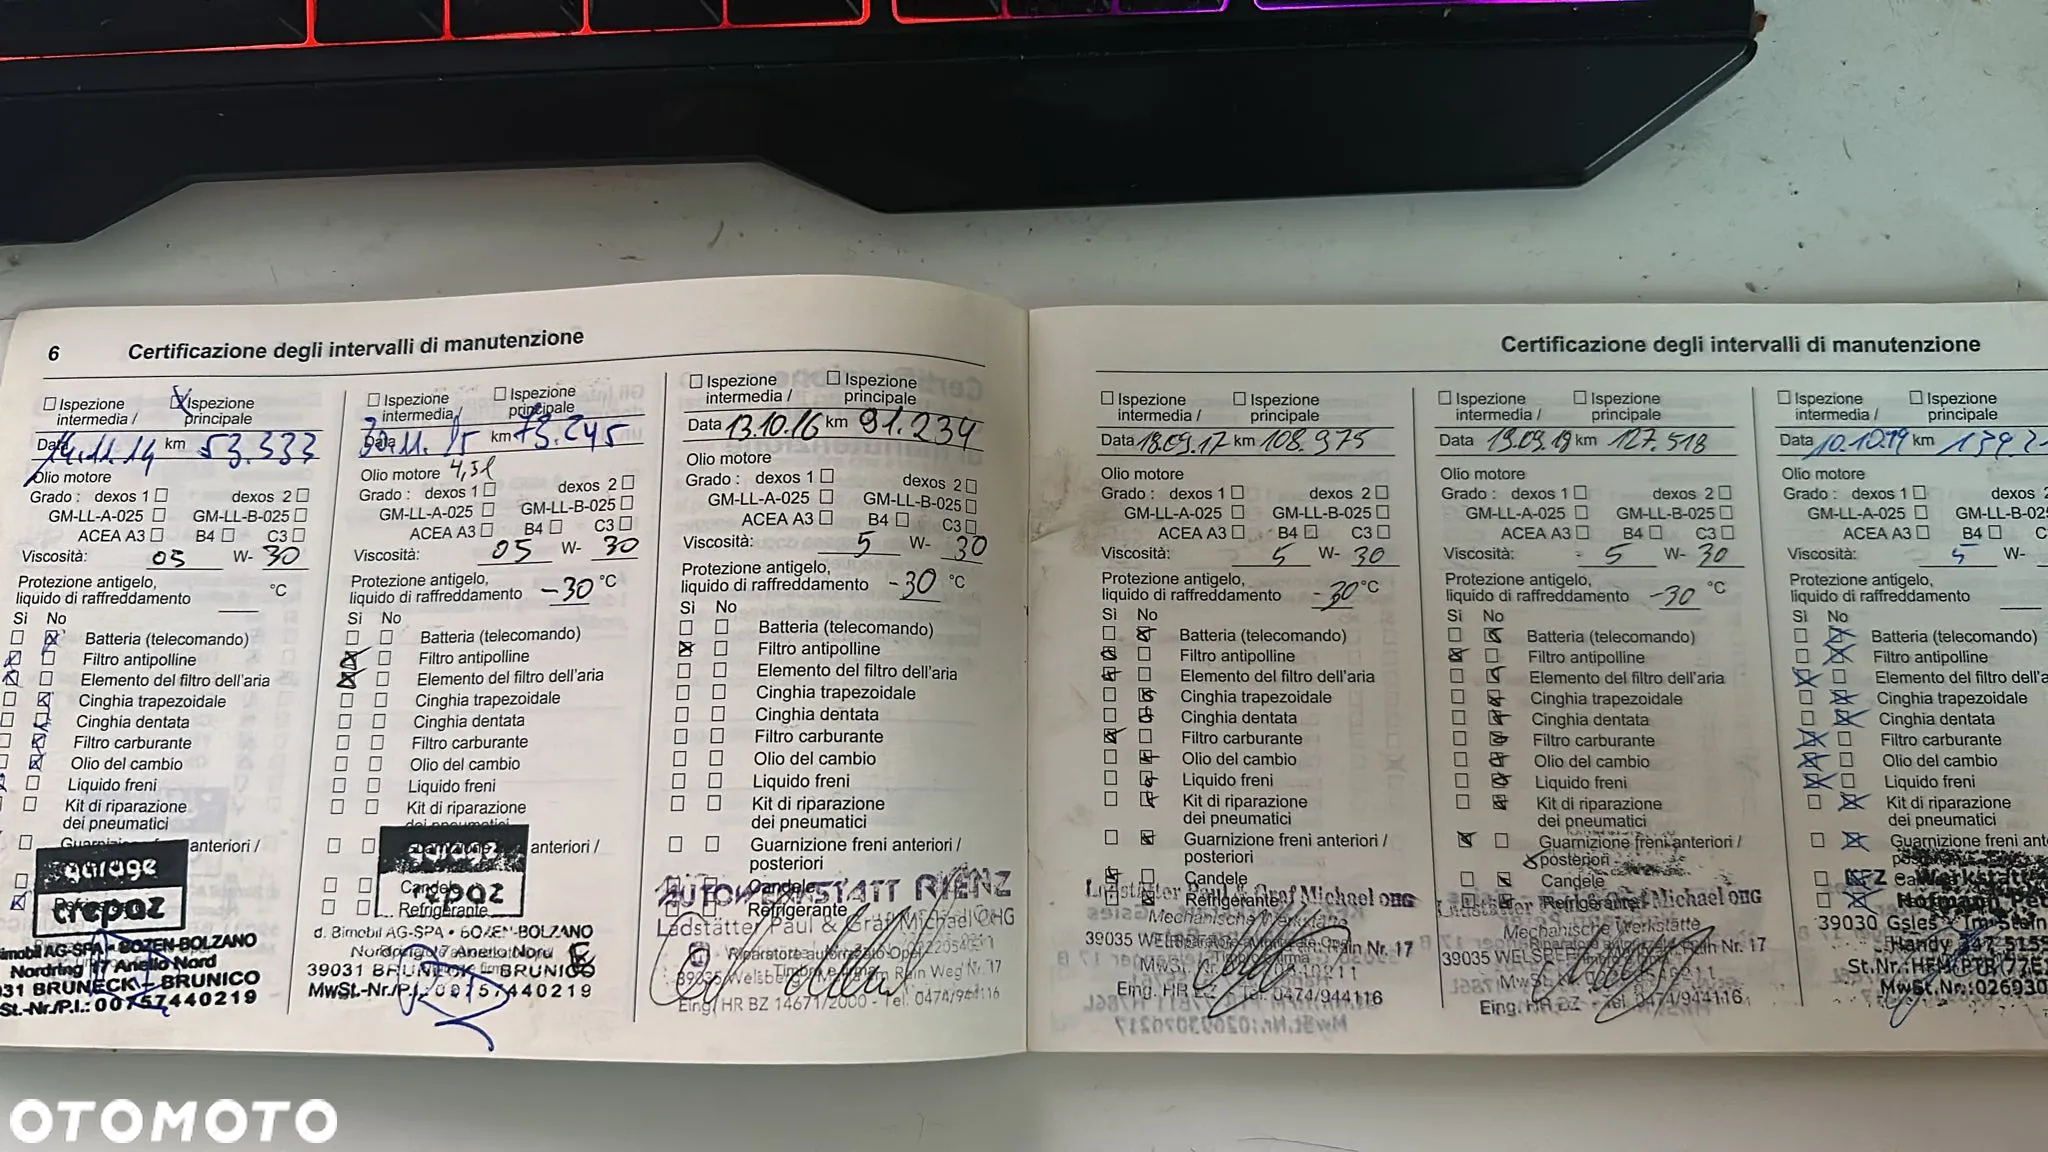 6 Certificazione degli intervalli di manutenzione
Ispezione intermedia / Ispezione principale
Data 14.11.14 km 53.333
Olio motore
Grado : dexos 1 dexos 2
GM-LL-A-025 GM-LL-B-025
ACEA A3 B4 C3
Viscosità: 05 W- 30
Protezione antigelo,
liquido di raffreddamento °C
Sì No
Batteria (telecomando)
Filtro antipolline
Elemento del filtro dell'aria
Cinghia trapezoidale
Cinghia dentata
Filtro carburante
Olio del cambio
Liquido freni
Kit di riparazione
dei pneumatici
anteriori /
garage
trepoz
AG-SPA • BOZEN-BOLZANO
Nordring 17 Anello Nord
BRUNECK - BRUNICO
00757440219
Ispezione intermedia / Ispezione principale
Data 30.11.15 km 73.245
Olio motore 4,5l
Grado : dexos 1 dexos 2
GM-LL-A-025 GM-LL-B-025
ACEA A3 B4 C3
Viscosità: 05 W- 30
Protezione antigelo,
liquido di raffreddamento -30 °C
Sì No
Batteria (telecomando)
Filtro antipolline
Elemento del filtro dell'aria
Cinghia trapezoidale
Cinghia dentata
Filtro carburante
Olio del cambio
Liquido freni
Kit di riparazione
dei pneumatici
anteriori /
garage
Candele
Refrigerante
d. Bimobil AG-SPA • BOZEN-BOLZANO
Nordring 17 Anello Nord
39031 BRUNECK - BRUNICO
MwSt.-Nr./P.I.: 00757440219
Ispezione intermedia / Ispezione principale
Data 13.10.16 km 91.234
Olio motore
Grado : dexos 1 dexos 2
GM-LL-A-025 GM-LL-B-025
ACEA A3 B4 C3
Viscosità: 5 W- 30
Protezione antigelo,
liquido di raffreddamento -30 °C
Sì No
Batteria (telecomando)
Filtro antipolline
Elemento del filtro dell'aria
Cinghia trapezoidale
Cinghia dentata
Filtro carburante
Olio del cambio
Liquido freni
Kit di riparazione
dei pneumatici
Guarnizione freni anteriori /
posteriori
Candele
AUTOWERKSTATT RIENZ
Refrigerante
Ladstätter Paul & Graf Michael OHG
Riparatore autorizzato Opel
39035 Welsberg am Rain Weg Nr. 17
Eing. HR BZ 14671/2000 - Tel. 0474/944116
Certificazione degli intervalli di manutenzione
Ispezione intermedia / Ispezione principale
Data 18.09.17 km 108.975
Olio motore
Grado : dexos 1 dexos 2
GM-LL-A-025 GM-LL-B-025
ACEA A3 B4 C3
Viscosità: 5 W- 30
Protezione antigelo,
liquido di raffreddamento -30 °C
Sì No
Batteria (telecomando)
Filtro antipolline
Elemento del filtro dell'aria
Cinghia trapezoidale
Cinghia dentata
Filtro carburante
Olio del cambio
Liquido freni
Kit di riparazione
dei pneumatici
Guarnizione freni anteriori /
posteriori
Candele
Ladstätter Paul & Graf Michael OHG
Refrigerante
Mechanische Werkstätte
Rain Nr. 17
Tel. 0474/944116
Ispezione intermedia / Ispezione principale
Data 19.09.18 km 127.518
Olio motore
Grado : dexos 1 dexos 2
GM-LL-A-025 GM-LL-B-025
ACEA A3 B4 C3
Viscosità: 5 W- 30
Protezione antigelo,
liquido di raffreddamento -30 °C
Sì No
Batteria (telecomando)
Filtro antipolline
Elemento del filtro dell'aria
Cinghia trapezoidale
Cinghia dentata
Filtro carburante
Olio del cambio
Liquido freni
Kit di riparazione
dei pneumatici
Guarnizione freni anteriori /
posteriori
Candele
Refrigerante
Michael OHG
Mechanische Werkstätte
Rain Nr. 17
Tel. 0474/944116
Ispezione intermedia / Ispezione principale
Data 10.10.19 km
Olio motore
Grado : dexos 1 dexos
GM-LL-A-025
ACEA A3 B4
Viscosità: 5 W-
Protezione antigelo,
liquido di raffreddamento
Sì No
Batteria (telecomando)
Filtro antipolline
Elemento del filtro dell'a
Cinghia trapezoidale
Cinghia dentata
Filtro carburante
Olio del cambio
Liquido freni
Kit di riparazione
dei pneumatici
Guarnizione freni
Hofmann
39030 Gsies
Handy
OTOMOTO